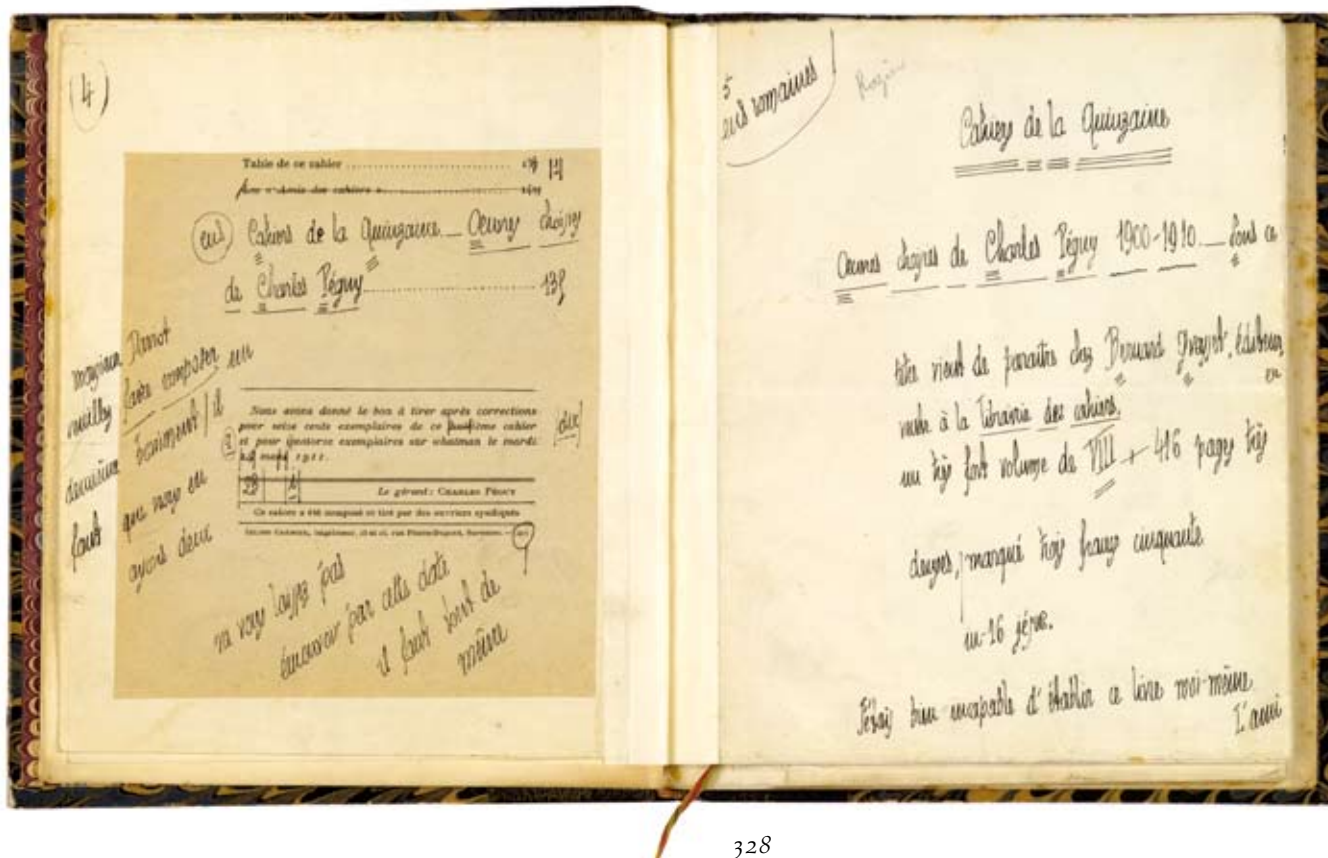 (4)
Table de ce cahier
pour « Amis des cahiers »
(en) Cahiers de la Quinzaine — Œuvres choisies
de Charles Péguy 135
monsieur
veuillez faire composer en
deuxième | il
faut que nous en
ayons deux
Nous avons donné le bon à tirer après corrections
pour seize cents exemplaires de ce huitième cahier
dix
et pour quatorze exemplaires sur whatman le mardi
mars 1911.
28
Le gérant : CHARLES PÉGUY
Ce cahier a été composé et tiré par des ouvriers syndiqués
imprimeur, rue Pierre-Dupont, Suresnes.
ne vous laissez pas
émouvoir par cette date
il faut tout de
même
5
romaines
Cahiers de la Quinzaine
Œuvres choisies de Charles Péguy 1900-1910 — sous ce
titre vient de paraître chez Bernard Grasset, éditeur,
en
vente à la librairie des cahiers,
un très fort volume de VIII + 416 pages très
denses, marqué trois francs cinquante
in-16 jésus.
J'étais bien incapable d'établir ce livre moi-même
L'ami
328